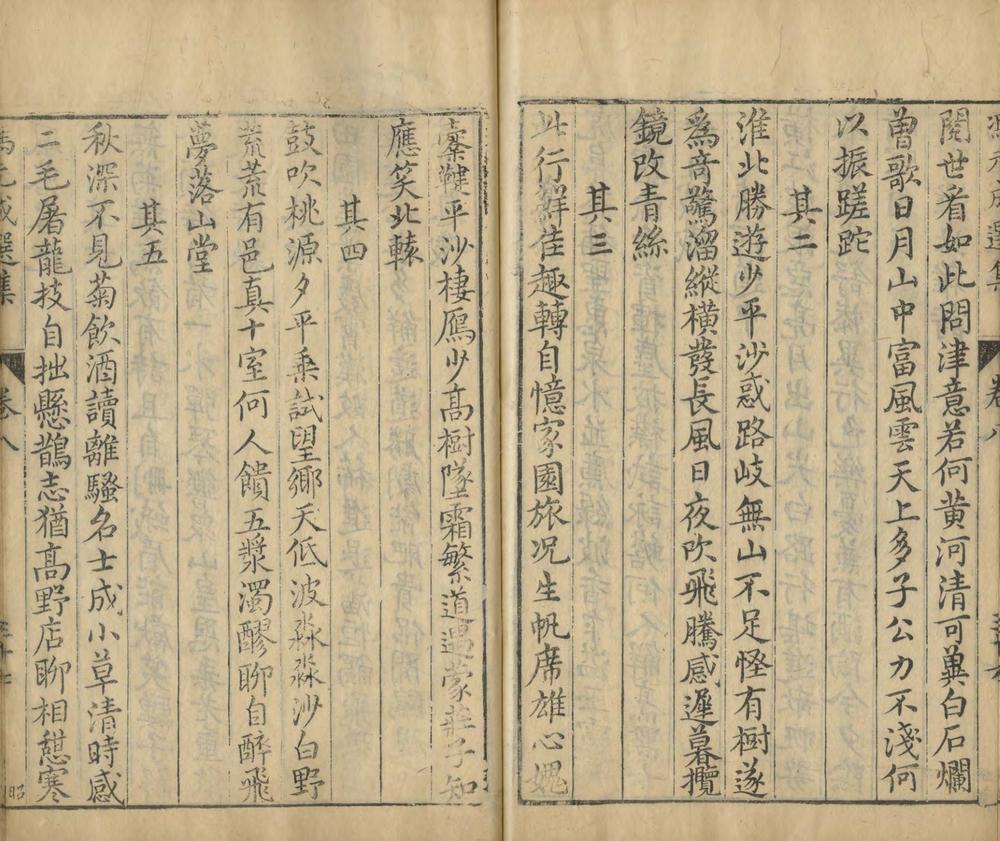 閱世看如此問津意若何黃河清可冀白石爛
曾歌日月山中富風雲天上多子公力不淺何
以振蹉跎
其二
淮北勝遊少平沙惑路岐無山不足怪有樹遂
為奇驚溜縱橫發長風日夜吹飛騰感遲暮攬
鏡改青絲
其三
此行鮮佳趣轉自憶家園旅况生帆席雄心媿
櫜鞬平沙棲鴈少高樹墜霜繁道遇蒙莊子知
應笑北轅
其四
鼓吹桃源夕平乗試望鄉天低波淼淼沙白野
荒荒有邑真十室何人饋五漿濁醪聊自醉飛
夢落山堂
其五
秋深不見菊飲酒讀離騷名士成小草清時感
二毛屠龍技自拙懸鶉志猶高野店聊相憇寒
選集
卷八